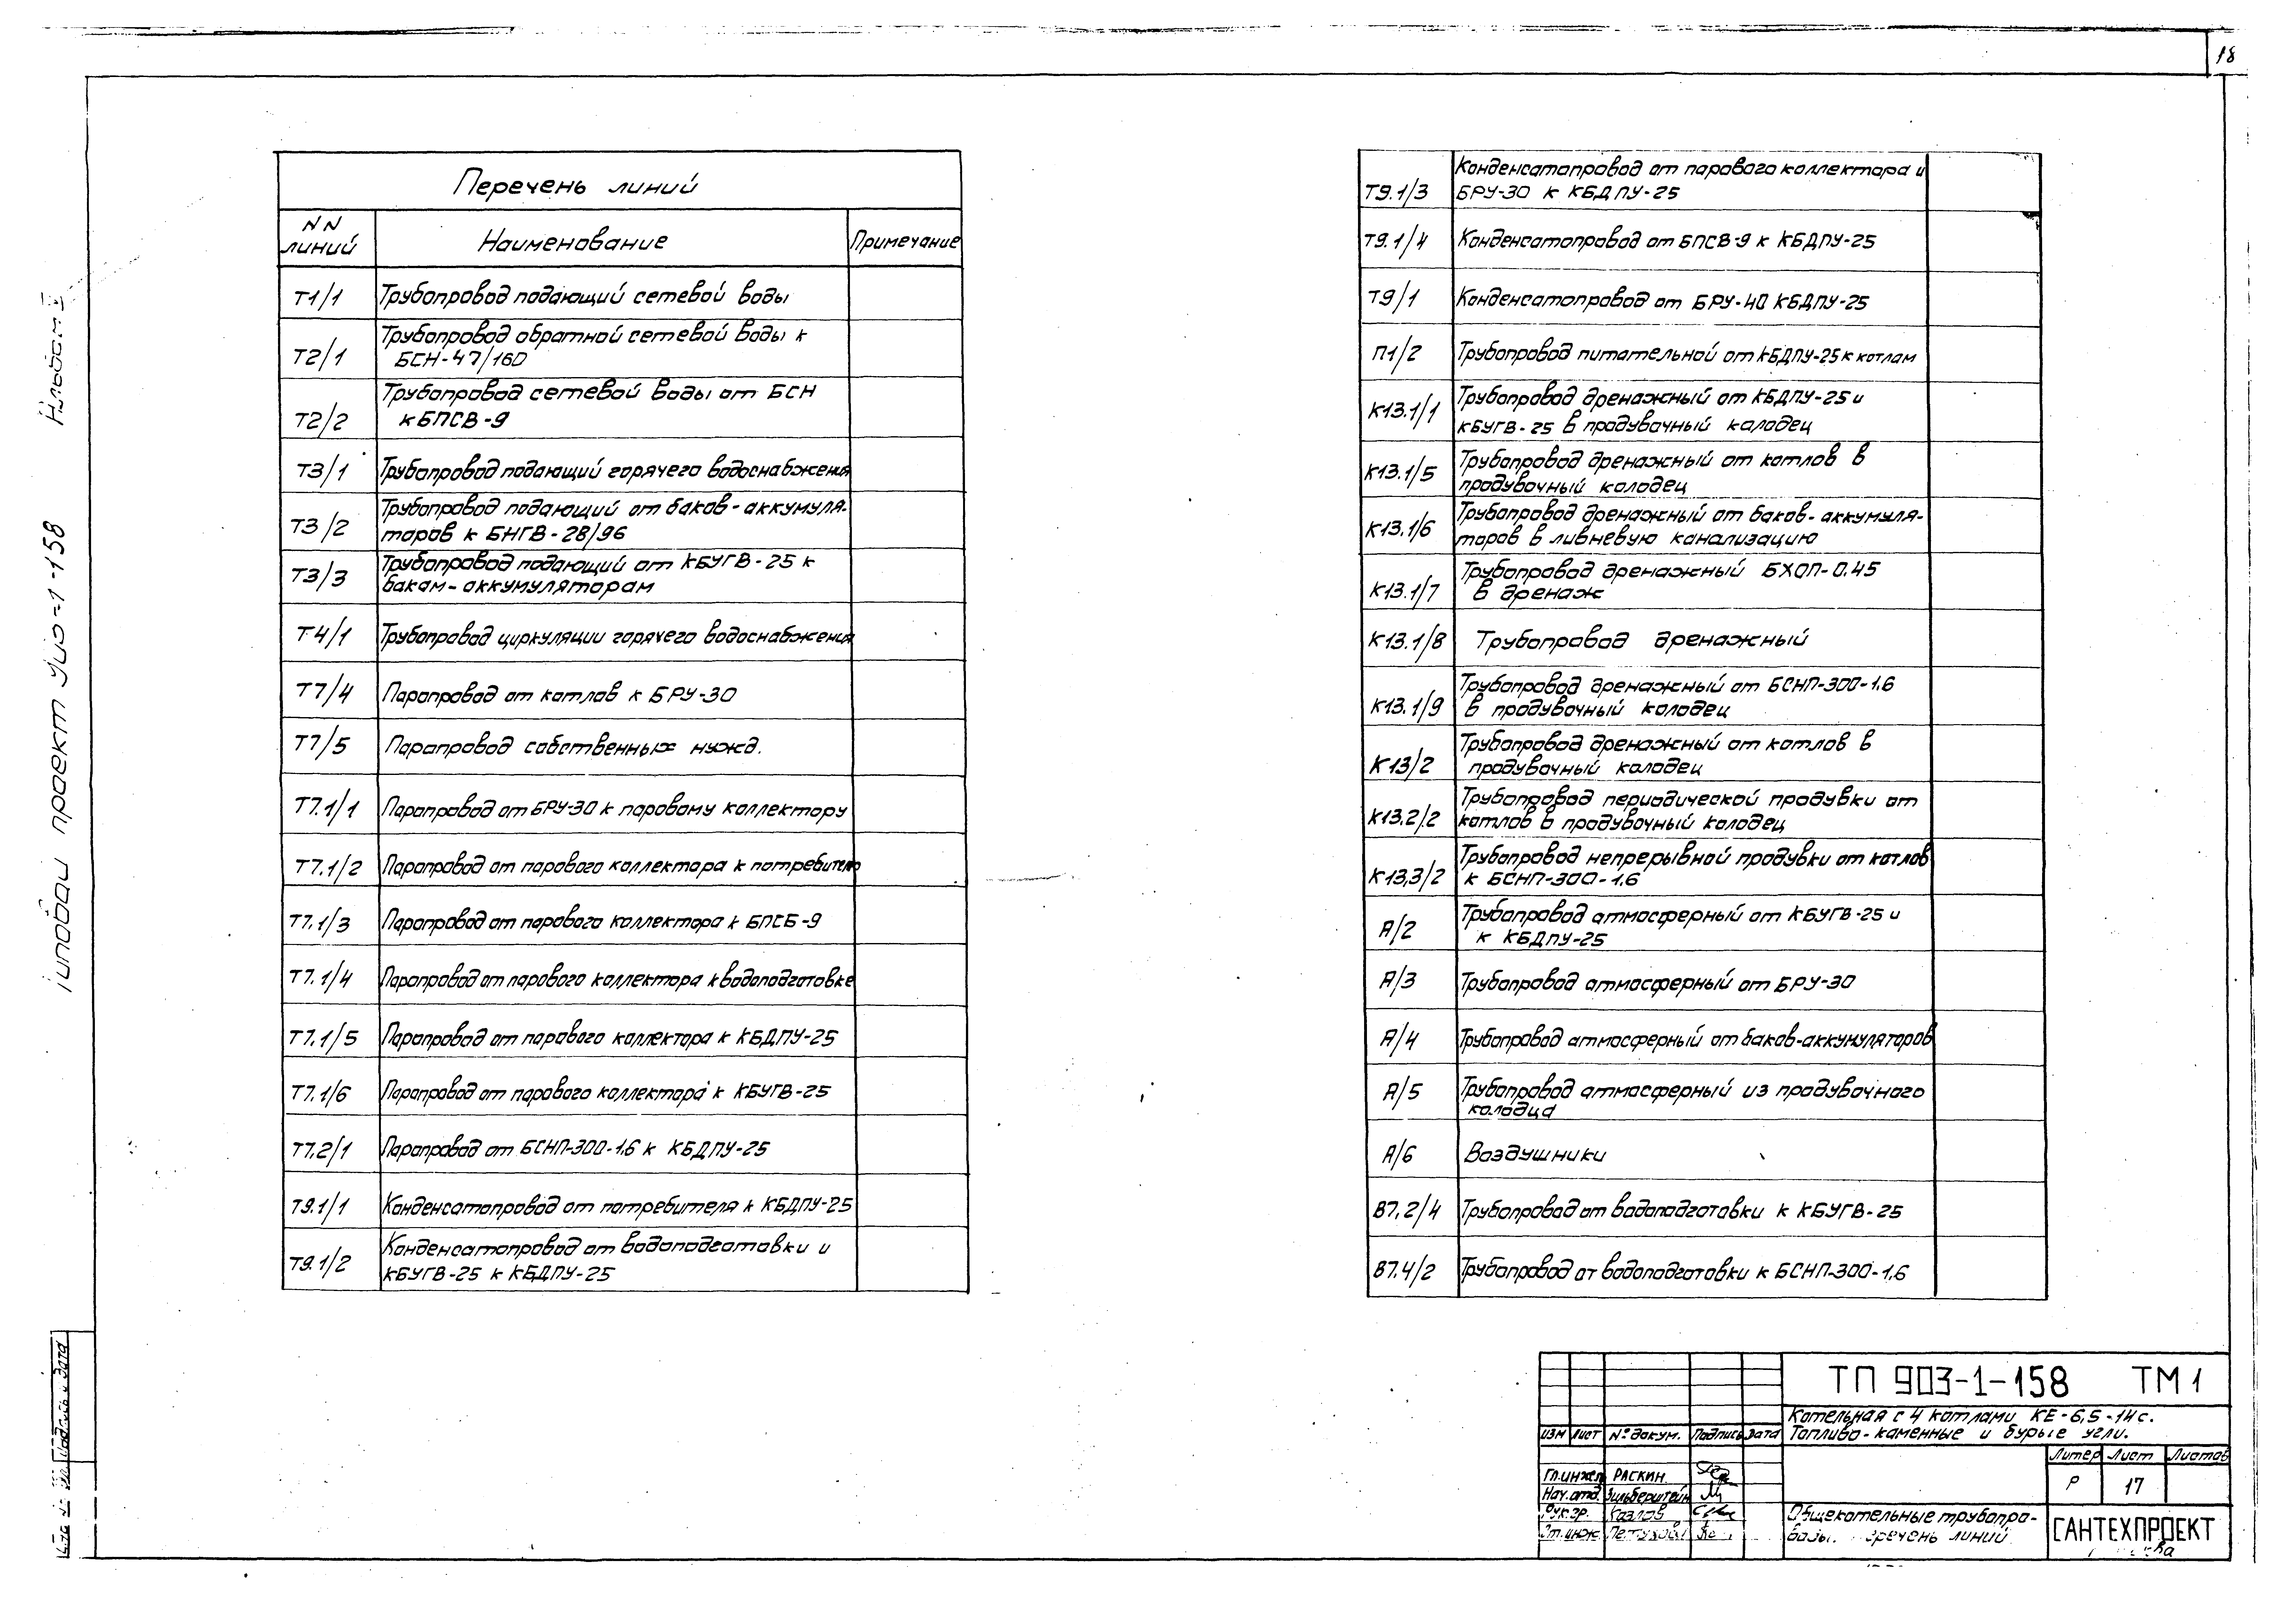 18
Перечень линий
NN линий Наименование Примечание
Т1/1 Трубопровод подающий сетевой воды
Т2/1 Трубопровод обратной сетевой воды к
БСН-47/160
Т2/2 Трубопровод сетевой воды от БСН
к БПСВ-9
Т3/1 Трубопровод подающий горячего водоснабжения
Т3/2 Трубопровод подающий от баков-аккумуля-
торов к БНГВ-28/96
Т3/3 Трубопровод подающий от КБУГВ-25 к
бакам-аккумуляторам
Т4/1 Трубопровод циркуляции горячего водоснабжения
Т7/4 Паропровод от котлов к БРУ-30
Т7/5 Паропровод собственных нужд.
Т7.1/1 Паропровод от БРУ-30 к паровому коллектору
Т7.1/2 Паропровод от парового коллектора к потребителю
Т7.1/3 Паропровод от парового коллектора к БПСБ-9
Т7.1/4 Паропровод от парового коллектора к водоподготовке
Т7.1/5 Паропровод от парового коллектора к КБДПУ-25
Т7.1/6 Паропровод от парового коллектора к КБУГВ-25
Т7.2/1 Паропровод от БСНП-300-1.6 к КБДПУ-25
Т9.1/1 Конденсатопровод от потребителя к КБДПУ-25
Т9.1/2 Конденсатопровод от водоподготовки и
КБУГВ-25 к КБДПУ-25
Т9.1/3 Конденсатопровод от парового коллектора и
БРУ-30 к КБДПУ-25
Т9.1/4 Конденсатопровод от БПСВ-9 к КБДПУ-25
Т9/1 Конденсатопровод от БРУ-40 КБДПУ-25
П1/2 Трубопровод питательной от КБДПУ-25 к котлам
К13.1/1 Трубопровод дренажный от КБДПУ-25 и
КБУГВ-25 в продувочный колодец
К13.1/5 Трубопровод дренажный от котлов в
продувочный колодец
К13.1/6 Трубопровод дренажный от баков-аккумуля-
торов в ливневую канализацию
К13.1/7 Трубопровод дренажный БХОП-0.45
в дренаж
К13.1/8 Трубопровод дренажный
К13.1/9 Трубопровод дренажный от БСНП-300-1.6
в продувочный колодец
К13/2 Трубопровод дренажный от котлов в
продувочный колодец
К13.2/2 Трубопровод периодической продувки от
котлов в продувочный колодец
К13,3/2 Трубопровод непрерывной продувки от котлов
к БСНП-300-1.6
А/2 Трубопровод атмосферный от КБУГВ-25 и
к КБДПУ-25
А/3 Трубопровод атмосферный от БРУ-30
А/4 Трубопровод атмосферный от баков-аккумуляторов
А/5 Трубопровод атмосферный из продувочного
колодца
А/6 Воздушники
В7.2/4 Трубопровод от водоподготовки к КБУГВ-25
В7.4/2 Трубопровод от водоподготовки к БСНП-300-1.6
ТП 903-1-158 ТМ1
Котельная с 4 котлами КЕ-6,5-14с.
Топливо-каменные и бурые угли.
Изм Лист № докум. Подпись Дата
Литер Лист Листов
Р 17
Гл.инжен РАСКИН
Нач.отд. Зильберштейн
Рук.гр. Козлов
Ст.инж.
Общекотельные трубопро-
воды. Перечень линий
САНТЕХПРОЕКТ
Москва
Типовой проект 903-1-158 Альбом
Подпись и дата